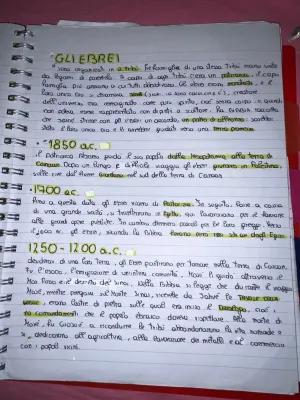 GLI EBREI
Sono organizzati in 12 tribù. Le famiglie di una stessa tribù erano unite
da legami di parentela. A capo di ogni tribù c'era un patriarca, il capo
famiglia più anziano a cui tutti obbedivano. Gli ebrei erano monoteisti, e il
loro unico Dio si chiamava creatore
dell'universo era immaginato come puro spirito, cioè senza corpo, e quindi
non poteva essere rappresentato con dipinti o sculture. La Bibbia racconta
che strinse con gli ebrei un accordo, un patto di alleanza: sarebbe
stato il loro unico Dio e li avrebbe guidati verso una terra promessa.
1850 a.C.
Il patriarca Abramo guidò il suo popolo dalla Mesopotamia alla terra di
Canaan. Dopo un lungo e difficile viaggio gli ebrei giunsero in Palestina
sulle rive del fiume Giordano nel sud della terra di Canaan
1400 a.C.
Fino a questa data gli ebrei vissero in Palestina. In seguito, forse a causa
di una grande siccità, si trasferirono in Egitto, qui lavoravano per il faraone
alle grandi opere pubbliche. In cambio ottennero pascoli per le loro greggi. Verso
il 1200 a.C. gli ebrei, secondo la Bibbia, furono resi schiavi dagli Egizi
1250 - 1200 a.C.
desiderosi di una loro terra, gli Ebrei partirono per tornare nella terra di Canaan.
Fu l'esodo, l'emigrazione di un'intera comunità. Mosè li guidò attraverso il
Mar Rosso e il deserto del Sinai. Nella Bibbia si legge che durante il viaggio
Mosè, mentre pregava sul Monte Sinai, ricevette da Jahvè le Tavole della
Legge, erano lastre di pietra sulle quali era inciso il Decalogo, cioè i
10 comandamenti che il popolo ebraico doveva rispettare. Alla morte di
Mosè, fu Giosuè a ricondurre le tribù abbandonarono la vita nomade e
si dedicarono all'agricoltura, alla lavorazione dei metalli e al commercio
con i popoli vicini.